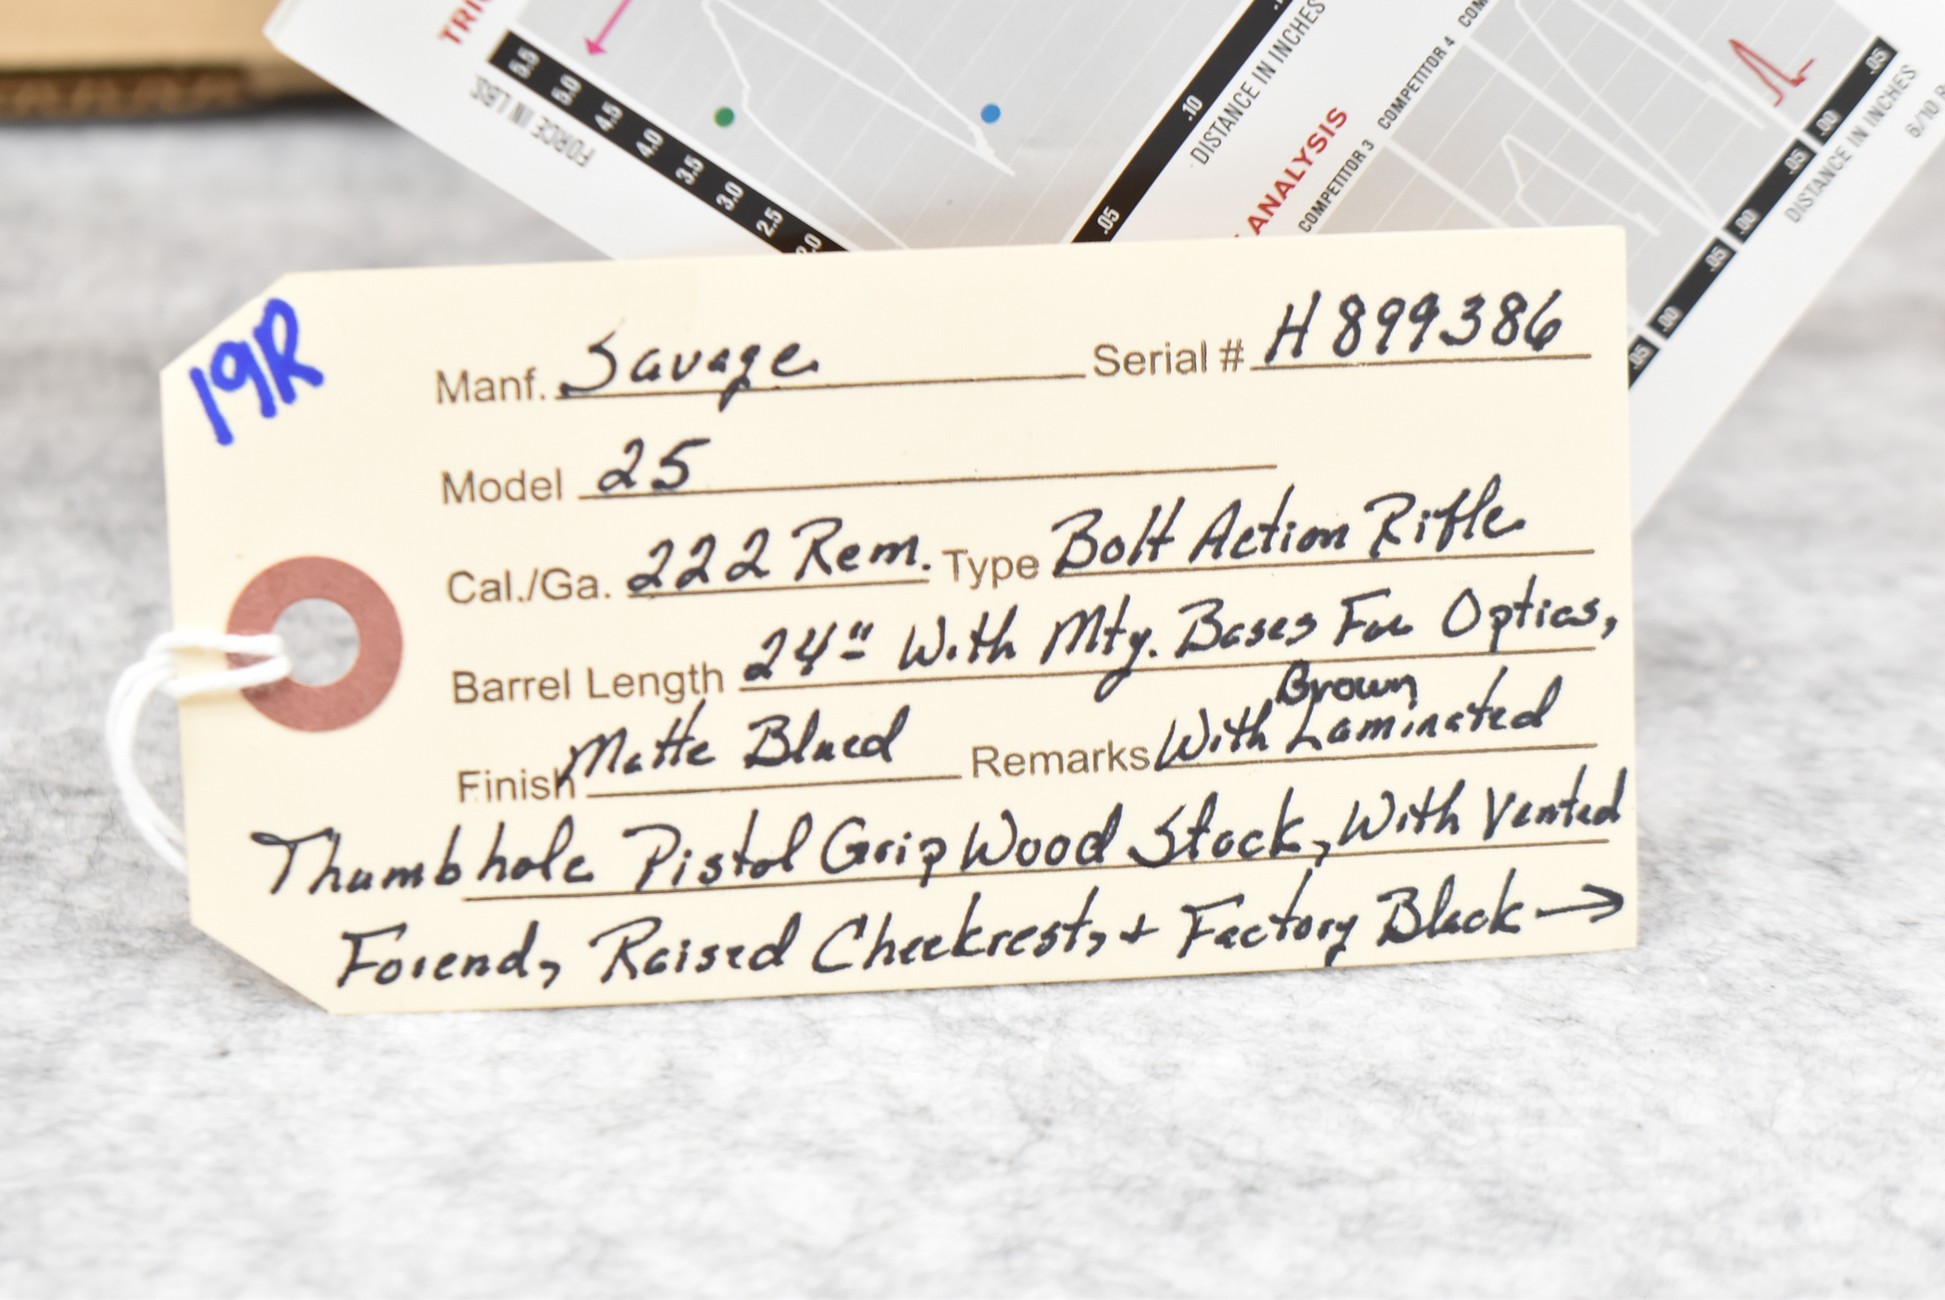 TRIG
5.5 5.0 4.5 4.0 3.5 3.0 2.5 2.0
FORCE IN LBS.
.10 .05
DISTANCE IN INCHES
ANALYSIS
COMPETITOR 3 COMPETITOR 4 COM
.05 .00 .05 .00 .05 .00 .05
DISTANCE IN INCHES
6/10 R
19R
Manf. Savage Serial # H899386
Model 25
Cal./Ga. 222 Rem. Type Bolt Action Rifle
Barrel Length 24" With Mtg. Bases For Optics,
Brown
Finish Matte Blued Remarks With Laminated
Thumbhole Pistol Grip Wood Stock, With Vented
Forend, Raised Cheekrest, + Factory Black →